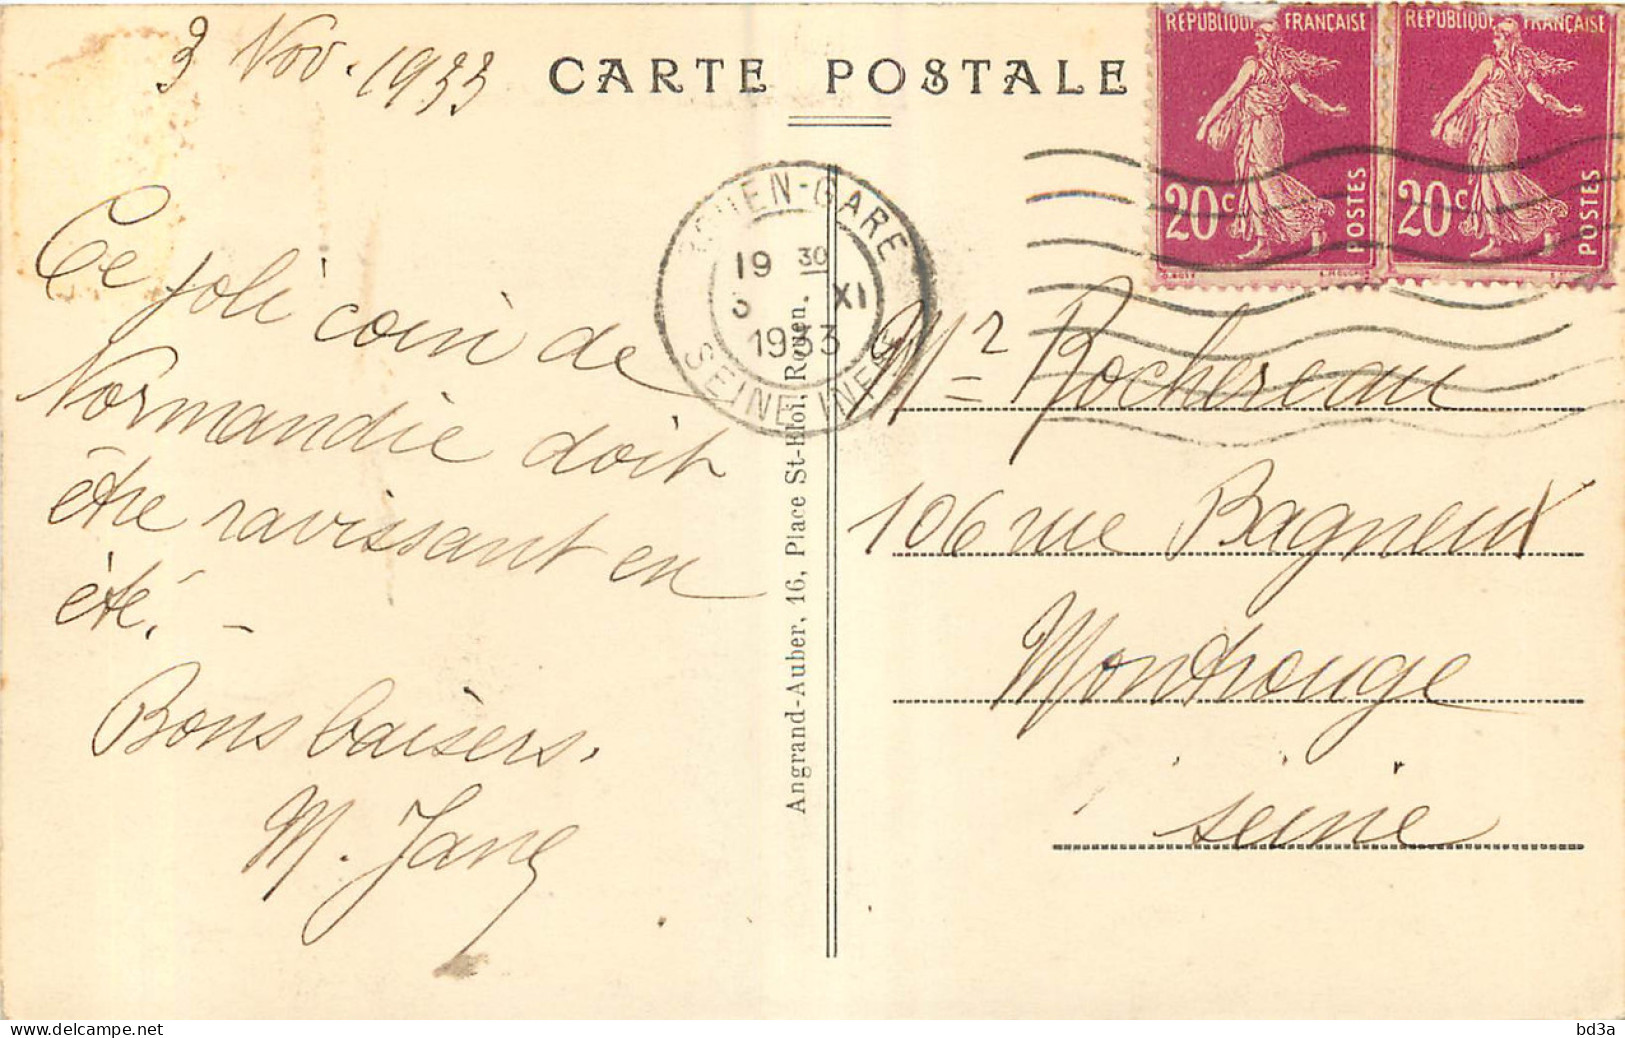 3 Nov. 1933
CARTE POSTALE
REPUBLIQUE FRANÇAISE
20c
POSTES
REPUBLIQUE FRANÇAISE
20c
POSTES
ROUEN-GARE
19 30
3 XI
1933
SEINE INFRE
Ce joli coin de
Normandie doit
être ravissant en
été. –
Bons baisers.
M. Jane
Angrand-Auber, 16, Place St-Eloi, Rouen.
Mr Rochereau
106 rue Bagneux
Montrouge
Seine
delcampe.net
bd3a